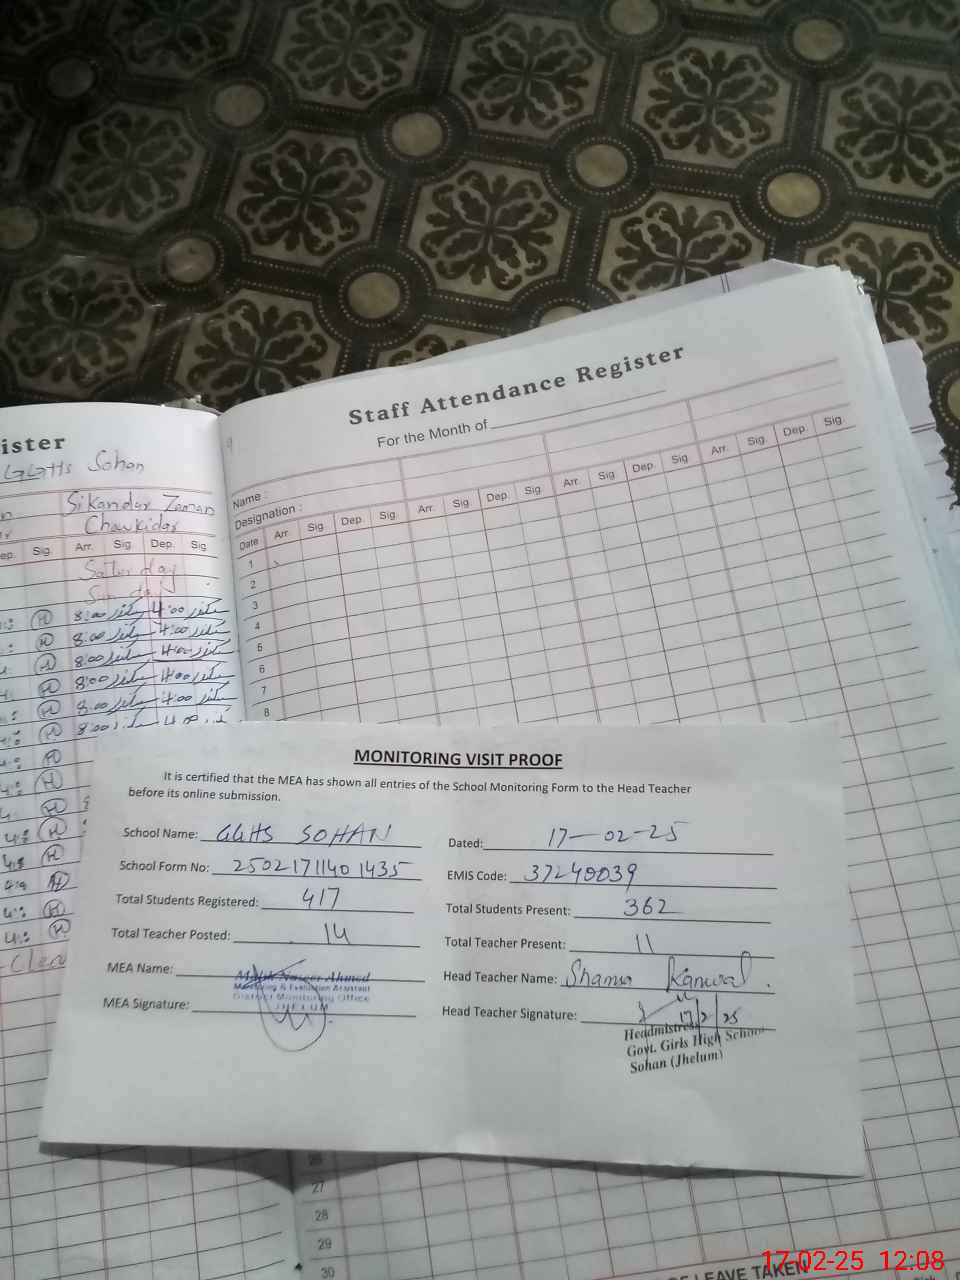 Staff Attendance Register
For the Month of
Name :
Designation :
Date Arr. Sig. Dep. Sig. Arr. Sig. Dep. Sig. Arr. Sig. Dep. Sig. Arr. Sig. Dep. Sig.
1
2
3
4
5
6
7
8
ister
GGHS Sohan
Sikandar Zaman
Chowkidar
ep. Sig. Arr. Sig. Dep. Sig.
Saturday
Sunday
H 8:00 4:00
H 8:00 4:00
H 8:00 4:00
H 8:00 4:00
H 8:00 4:00
H 8:00 4:00
MONITORING VISIT PROOF
It is certified that the MEA has shown all entries of the School Monitoring Form to the Head Teacher
before its online submission.
School Name: GGHS SOHAN Dated: 17-02-25
School Form No: 25021711401435 EMIS Code: 37240039
Total Students Registered: 417 Total Students Present: 362
Total Teacher Posted: 14 Total Teacher Present: 11
MEA Name: Naseer Ahmed Head Teacher Name: Shamsa Kanwal.
Monitoring & Evaluation Assistant
District Monitoring Office
JHELUM
MEA Signature: Head Teacher Signature: 17/2/25
Headmistress
Govt. Girls High School
Sohan (Jhelum)
26
27
28
29
30
LEAVE TAKEN
17-02-25 12:08